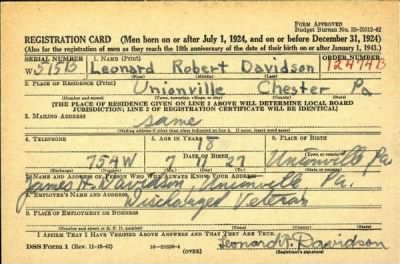 FORM APPROVED
Budget Bureau No. 33-R312-42
REGISTRATION CARD (Men born on or after July 1, 1924, and on or before December 31, 1924)
(Also for the registration of men as they reach the 18th anniversary of the date of their birth on or after January 1, 1943.)
SERIAL NUMBER 1. NAME (Print) ORDER NUMBER
W 515B Leonard Robert Davidson 12474B
(First) (Middle) (Last)
2. PLACE OF RESIDENCE (Print)
Unionville Chester Pa
(Number and street) (Town, township, village, or city) (County) (State)
[THE PLACE OF RESIDENCE GIVEN ON LINE 2 ABOVE WILL DETERMINE LOCAL BOARD
JURISDICTION; LINE 2 OF REGISTRATION CERTIFICATE WILL BE IDENTICAL]
3. MAILING ADDRESS
same
[Mailing address if other than place indicated on line 2. If same, insert word same]
4. TELEPHONE 5. AGE IN YEARS 6. PLACE OF BIRTH
18
754W 7 11 27 Unionville Pa.
10 NAME AND ADDRESS OF PERSON WHO WILL ALWAYS KNOW YOUR ADDRESS
James H. Davidson, Unionville, Pa.
8. EMPLOYER'S NAME AND ADDRESS
Discharged Veteran
9. PLACE OF EMPLOYMENT OR BUSINESS
(Number and street or R. F. D. number) (Town) (County) (State)
I AFFIRM THAT I HAVE VERIFIED ABOVE ANSWERS AND THAT THEY ARE TRUE.
DSS Form 1 (Rev. 11-16-42) (OVER) Leonard R. Davidson